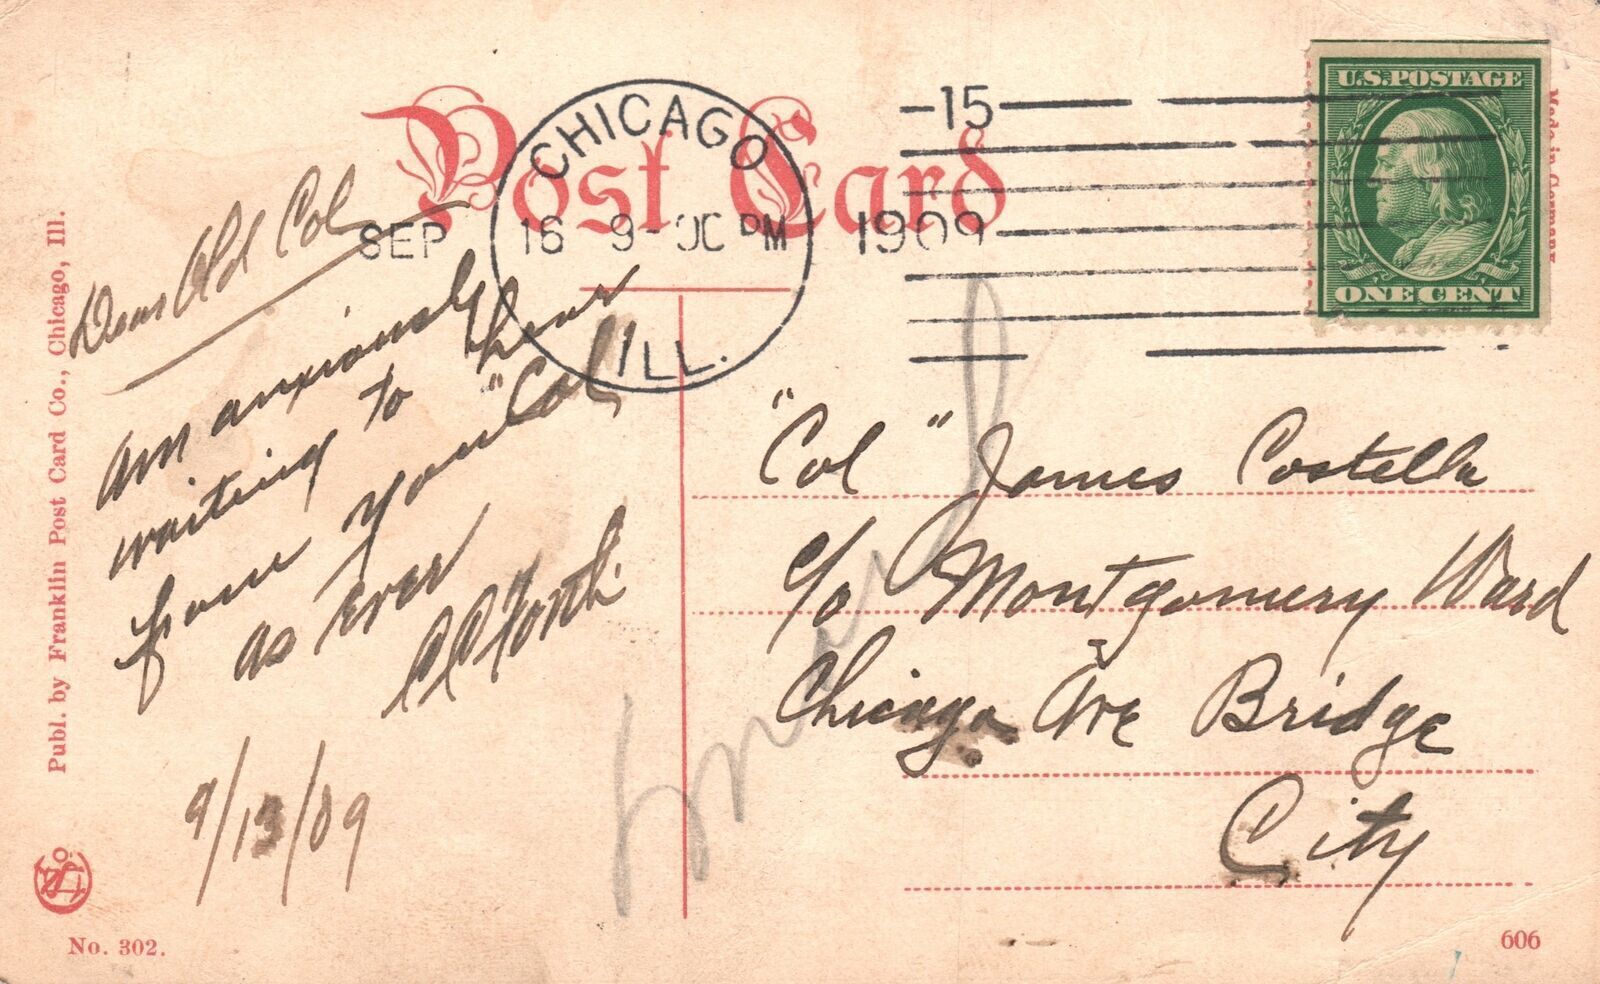 Post Card
CHICAGO
SEP 16 9-00 PM 1909
ILL.
-15
U.S. POSTAGE
ONE CENT
Made in Germany
Publ. by Franklin Post Card Co., Chicago, Ill.
Dear Old Col
Am anxiously
waiting to hear
from you "Col"
as Ever
9/13/09
"Col" James Costella
c/o Montgomery Ward
Chicago Ave Bridge
City
No. 302.
606